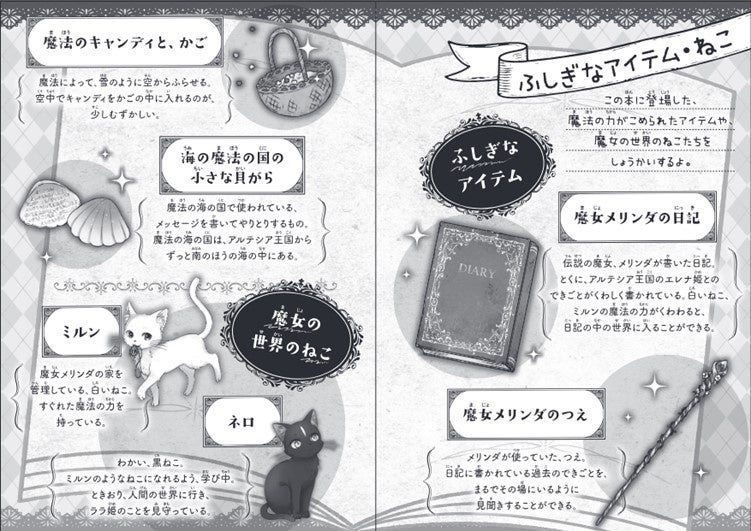 ふしぎなアイテム・ねこ
この本に登場した、
魔法の力がこめられたアイテムや、
魔女の世界のねこたちを
しょうかいするよ。
ふしぎな
アイテム
魔女メリンダの日記
伝説の魔女、メリンダが書いた日記。
とくに、アルテシア王国のエレナ姫との
できごとがくわしく書かれている。白いねこ、
ミルンの魔法の力がくわわると、
日記の中の世界に入ることができる。
DIARY
魔女メリンダのつえ
メリンダが使っていた、つえ。
日記に書かれている過去のできごとを、
まるでその場にいるように
見聞きすることができる。
魔法のキャンディと、かご
魔法によって、雪のように空からふらせる。
空中でキャンディをかごの中に入れるのが、
少しむずかしい。
海の魔法の国の
小さな貝がら
魔法の海の国で使われている、
メッセージを書いてやりとりするもの。
魔法の海の国は、アルテシア王国から
ずっと南のほうの海の中にある。
魔女の
世界のねこ
ミルン
魔女メリンダの家を
管理している、白いねこ。
すぐれた魔法の力を
持っている。
ネロ
わかい、黒ねこ。
ミルンのようなねこになれるよう、学び中。
ときおり、人間の世界に行き、
ララ姫のことを見守っている。